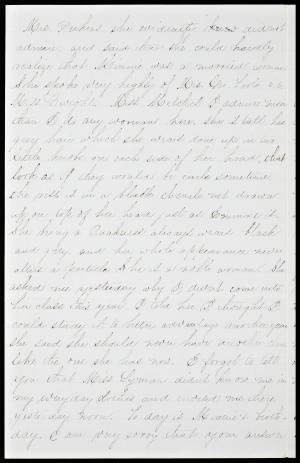 Mrs. Perkins she evidently does not
admire and said that she could hardly
realize that Minnie was a married woman
She spoke very highly of Mrs. Geo. and
Miss Dwight. Miss Mitchel I admire more
than I do any woman here, she is tall has
grey hair which she wears done up in two
little knobs on each side of her head, that
look as if they would be curls sometime
she puts it in a black chenille net drawn
up on top of her head just as Emma's is
She being a Quakeress always wears black
and grey, and her whole appearance never
alters a particle. She is a noble woman. She
asked me yesterday why I didn't come into
her class this year, I told her I thought I
could study it to better advantage another year
she said she should never have another class
like the one she has now. I forgot to tell
you that Miss Lyman didn't know me in
my everyday clothes and me there
yesterday noon. To day is Mamie's birth-
day. I am very sorry that your